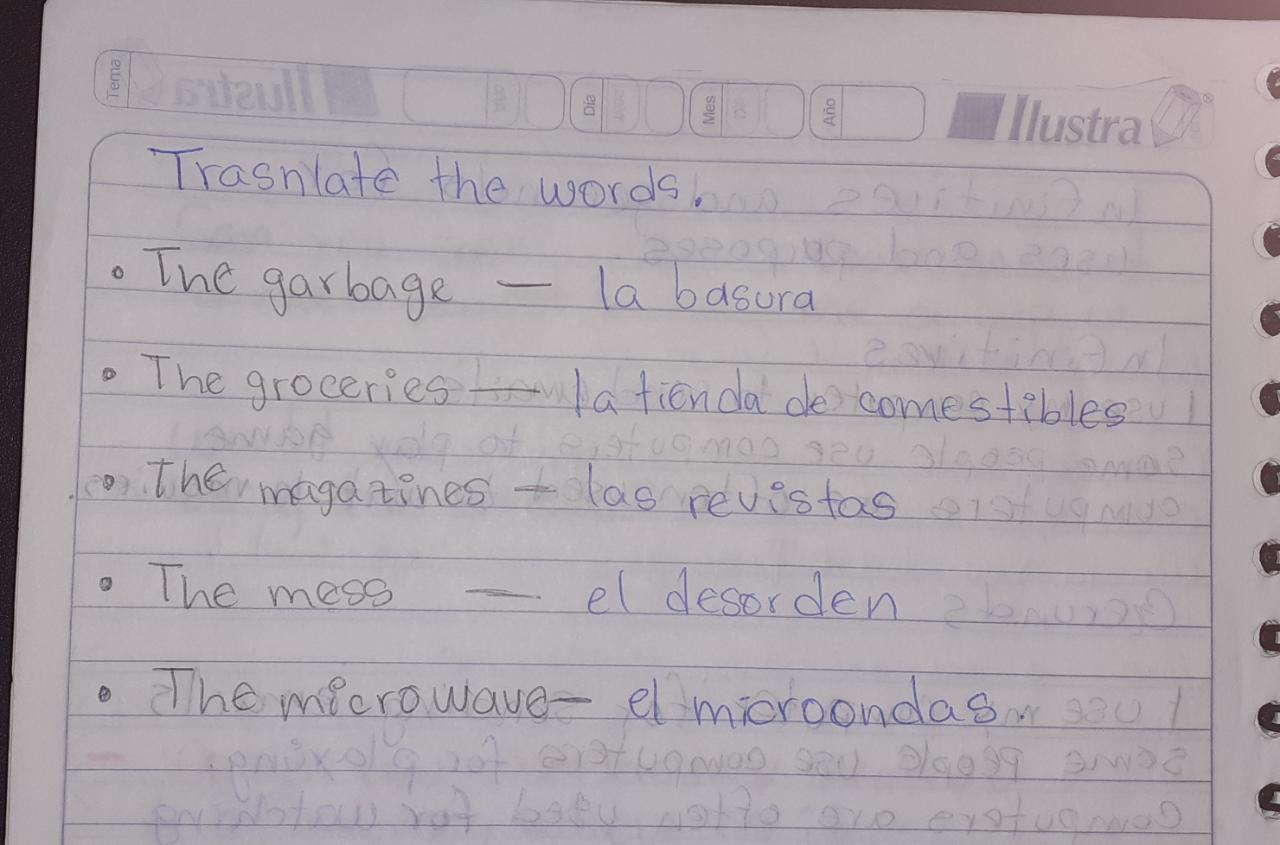 Tema Día Mes Año Ilustra
Trasnlate the words.
• The garbage — la basura
• The groceries — la tienda de comestibles
• The magazines — las revistas
• The mess — el desorden
• The microwave — el microondas.